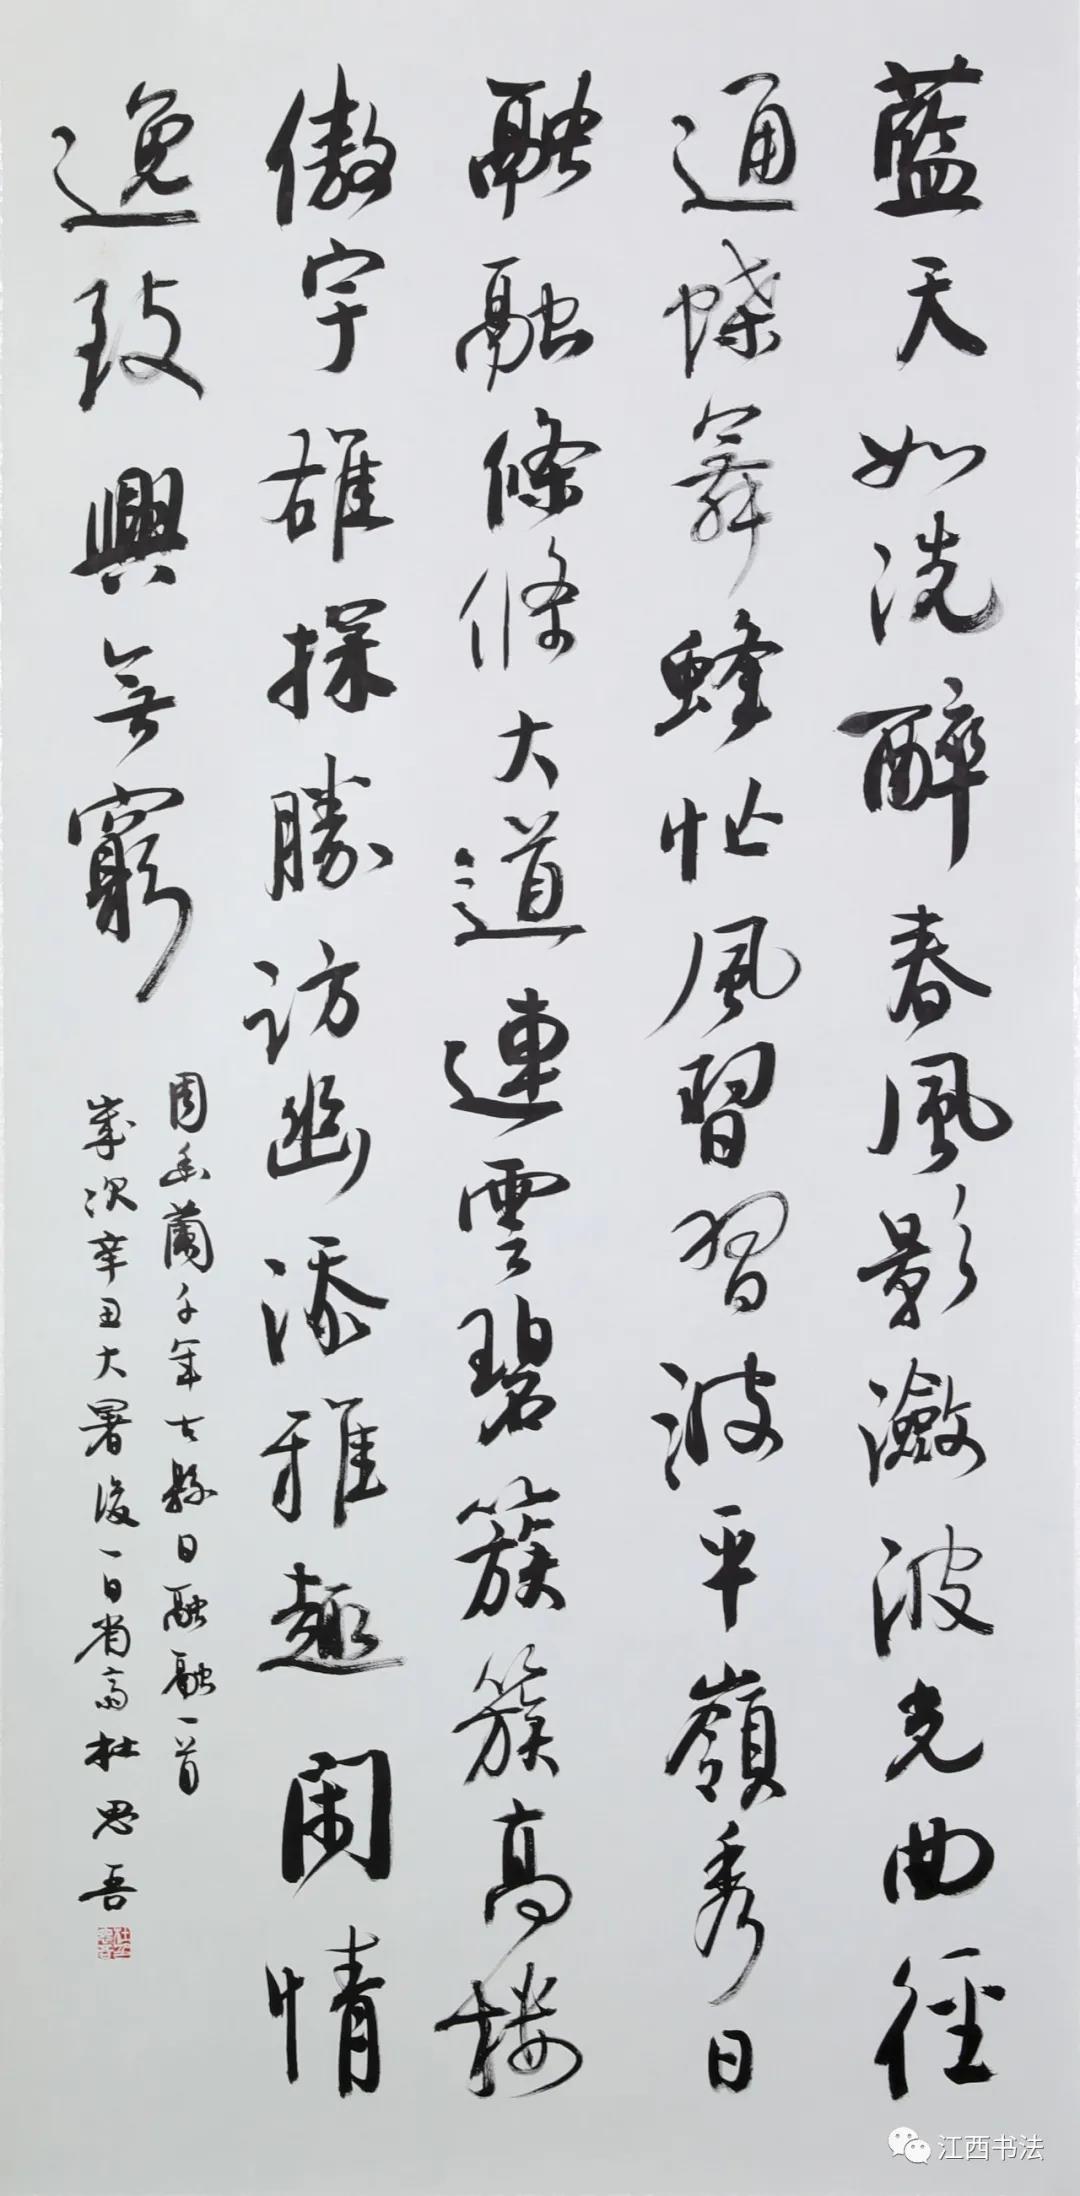 藍天如洗醉春風影瀲波光曲徑
通蝶舞蜂忙風習習波平嶺秀日
融融條條大道連雲碧簇簇高樓
傲宇雄探勝訪幽添雅趣閑情
逸致興無窮
周幽蘭千年古縣日融融一首
歲次辛丑大暑後一日省齋杜思吾
江西书法